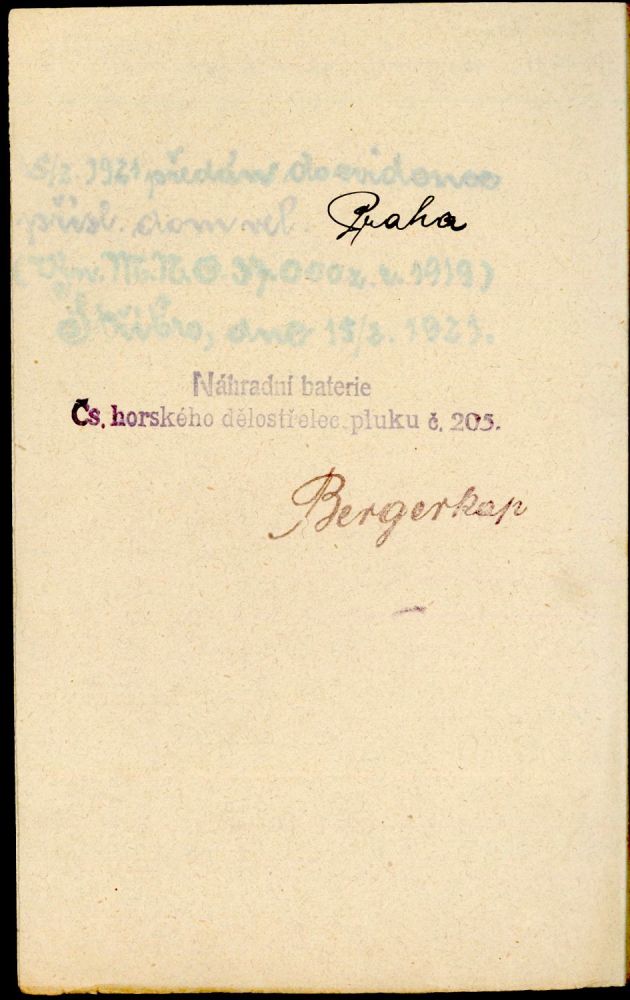 15/3. 1921 předán do evidence
přísl. dom. vel. Praha
(Výn. M.N.O. 37.000 z r. 1919)
Stříbro, dne 15/3. 1921.
Náhradní baterie
Čs. horského dělostřelec. pluku č. 205.
Bergerkap